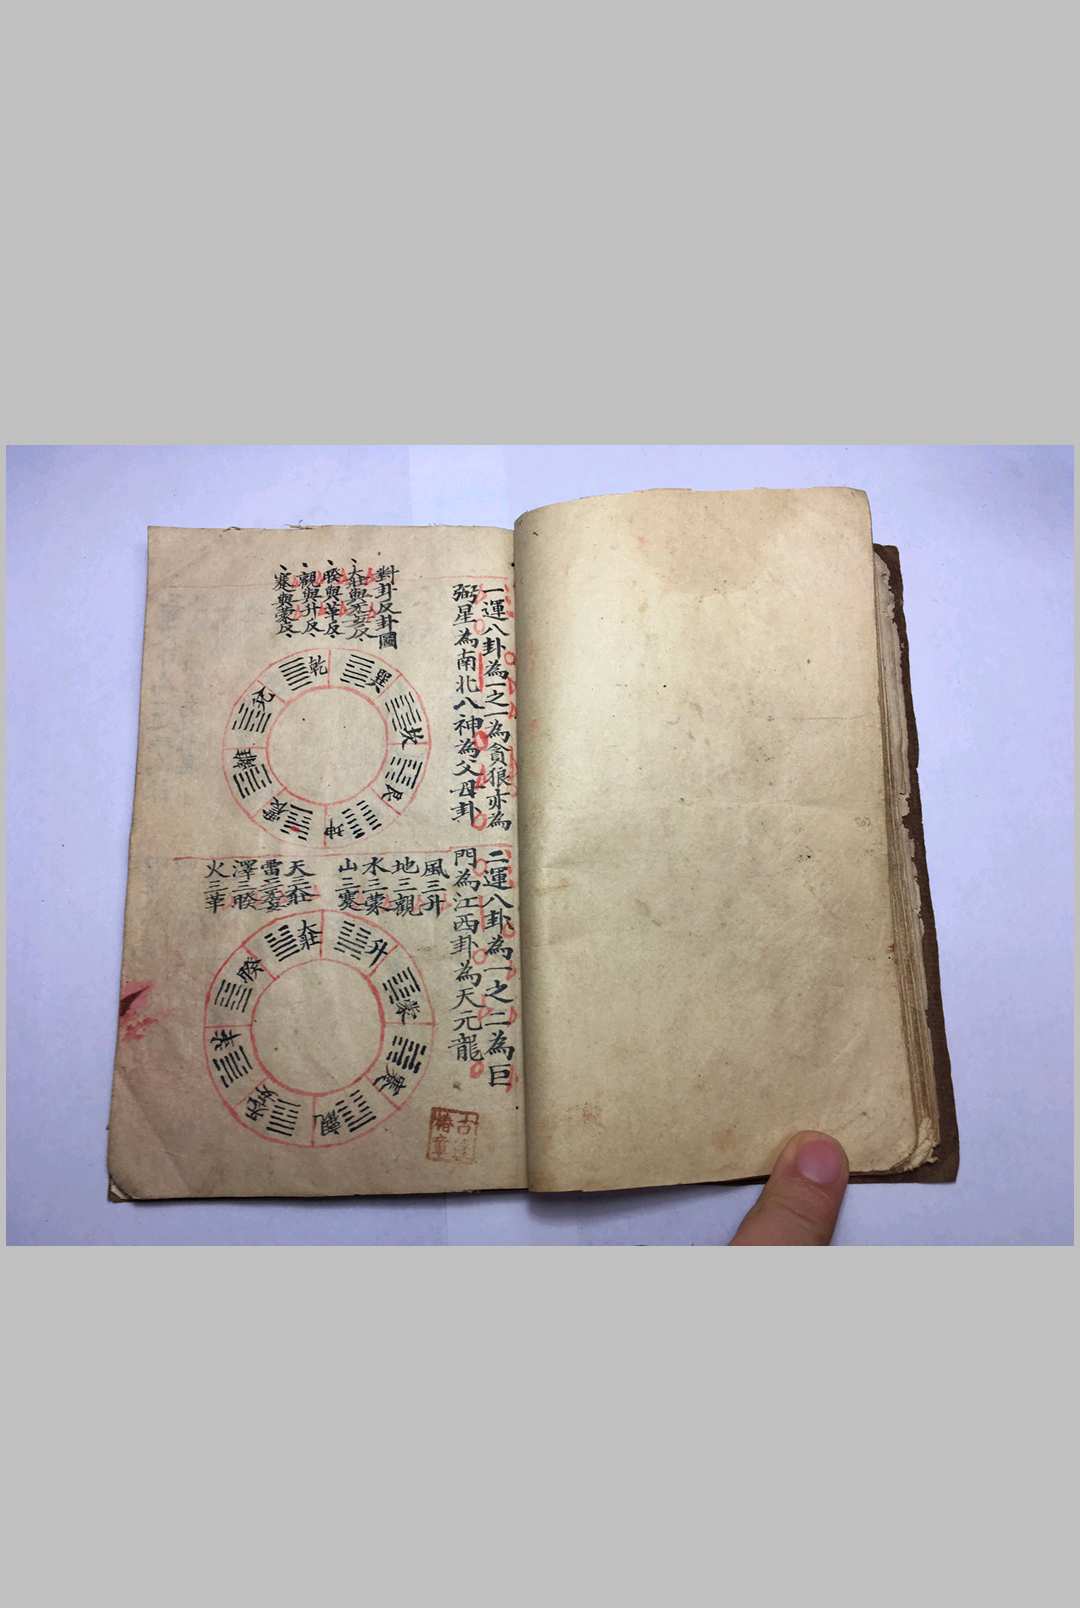 一運八卦為一之一為貪狼亦為
弼星為南北八神為父母卦
二運八卦為一之二為巨
門為江西卦為天元龍
對卦反卦圖
大壯與无妄反
睽與革反
觀與升反
蹇與蒙反
乾
巽
坎
艮
坤
震
離
兌
風三升
地三觀
水三蒙
山三蹇
天三壯
雷三无妄
澤三睽
火三革
大壯
升
蒙
蹇
觀
无妄
革
睽